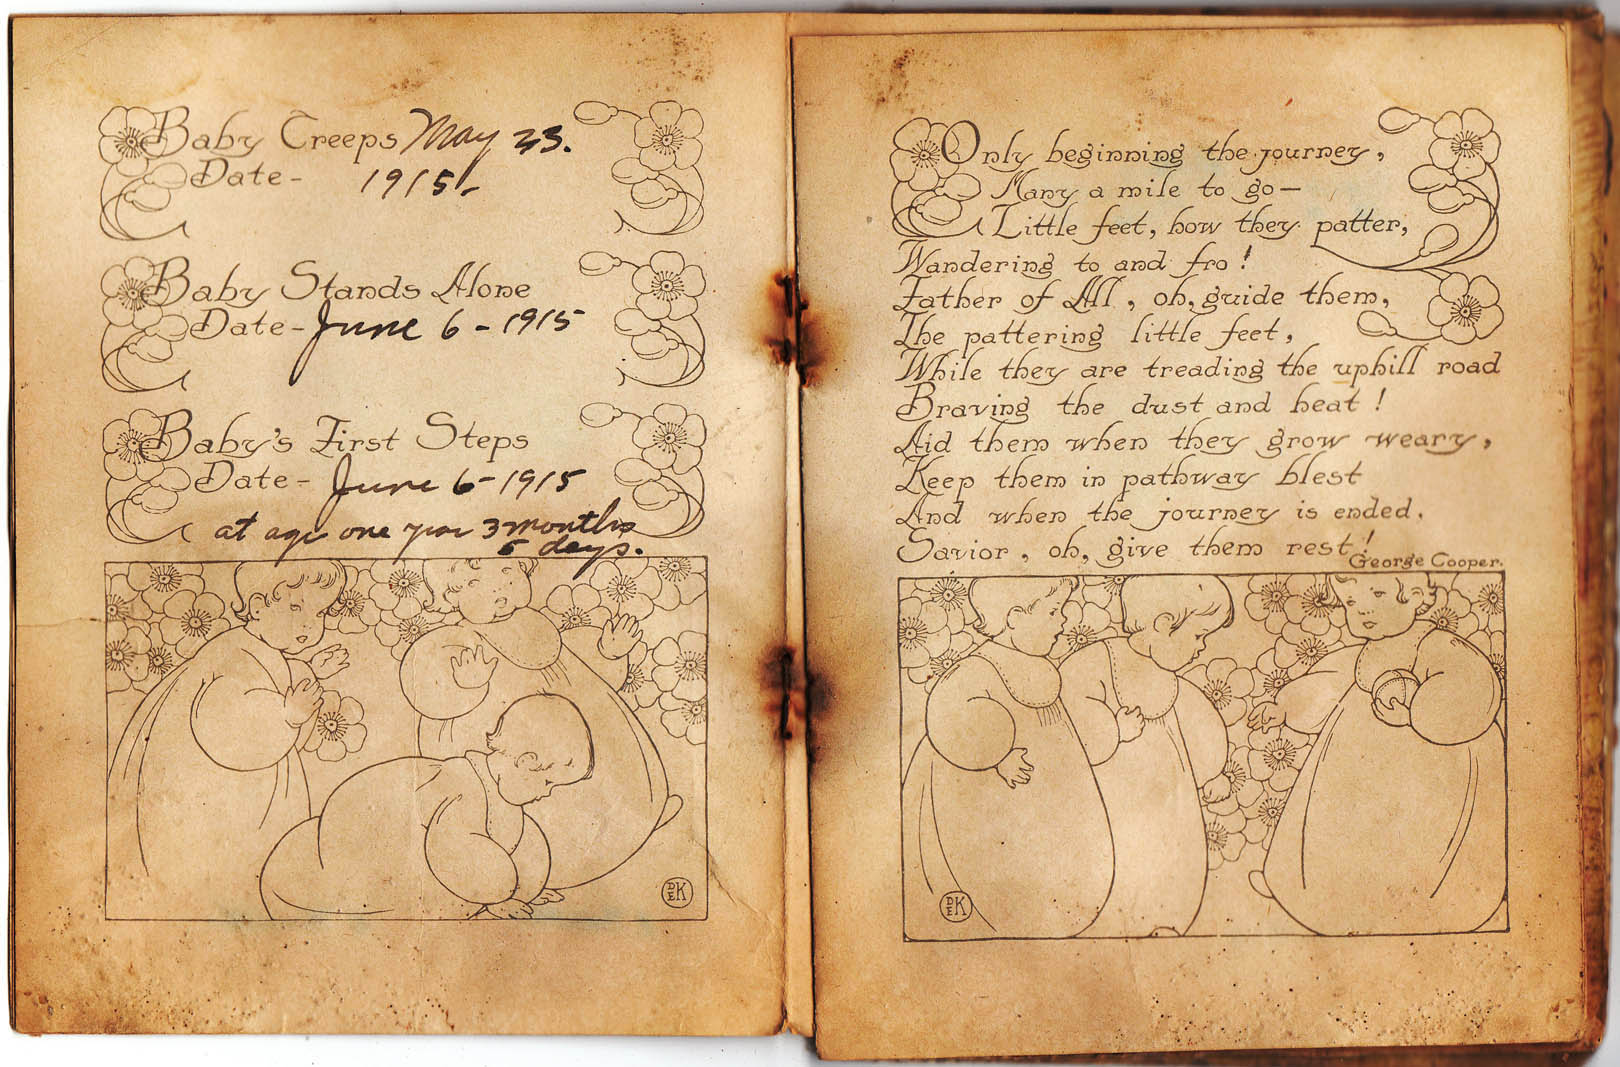 Baby Creeps May 23.
Date- 1915-
Baby Stands Alone
Date- June 6 - 1915
Baby's First Steps
Date- June 6-1915
at age one year 3 months
5 days.
DEK
Only beginning the journey,
Many a mile to go—
Little feet, how they patter,
Wandering to and fro!
Father of All, oh, guide them,
The pattering little feet,
While they are treading the uphill road
Braving the dust and heat!
Aid them when they grow weary,
Keep them in pathway blest
And when the journey is ended,
Savior, oh, give them rest!
George Cooper.
DEK